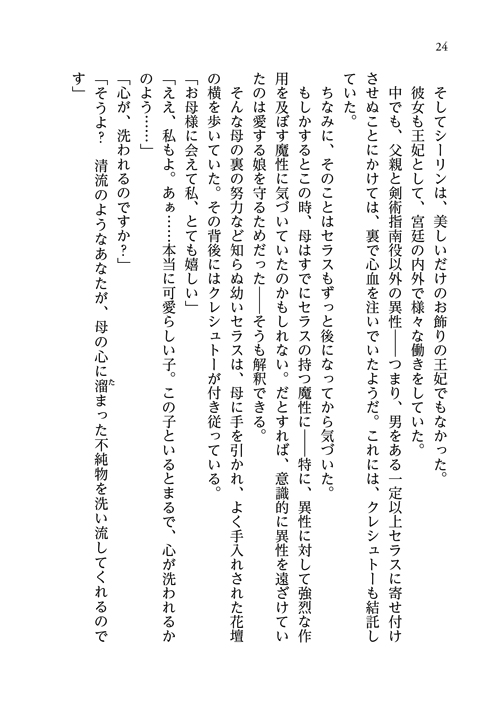 24
そしてシーリンは、美しいだけのお飾りの王妃でもなかった。
彼女も王妃として、宮廷の内外で様々な働きをしていた。
中でも、父親と剣術指南役以外の異性――つまり、男をある一定以上セラスに寄せ付け
させぬことにかけては、裏で心血を注いでいたようだ。これには、クレシュトーも結託し
ていた。
ちなみに、そのことはセラスもずっと後になってから気づいた。
もしかするとこの時、母はすでにセラスの持つ魔性に――特に、異性に対して強烈な作
用を及ぼす魔性に気づいていたのかもしれない。だとすれば、意識的に異性を遠ざけてい
たのは愛する娘を守るためだった――そうも解釈できる。
そんな母の裏の努力など知らぬ幼いセラスは、母に手を引かれ、よく手入れされた花壇
の横を歩いていた。その背後にはクレシュトーが付き従っている。
「お母様に会えて私、とても嬉しい」
「ええ、私もよ。あぁ……本当に可愛らしい子。この子といるとまるで、心が洗われるか
のよう……」
「心が、洗われるのですか？」
「そうよ？　清流のようなあなたが、母の心に溜まった不純物を洗い流してくれるので
す」
た